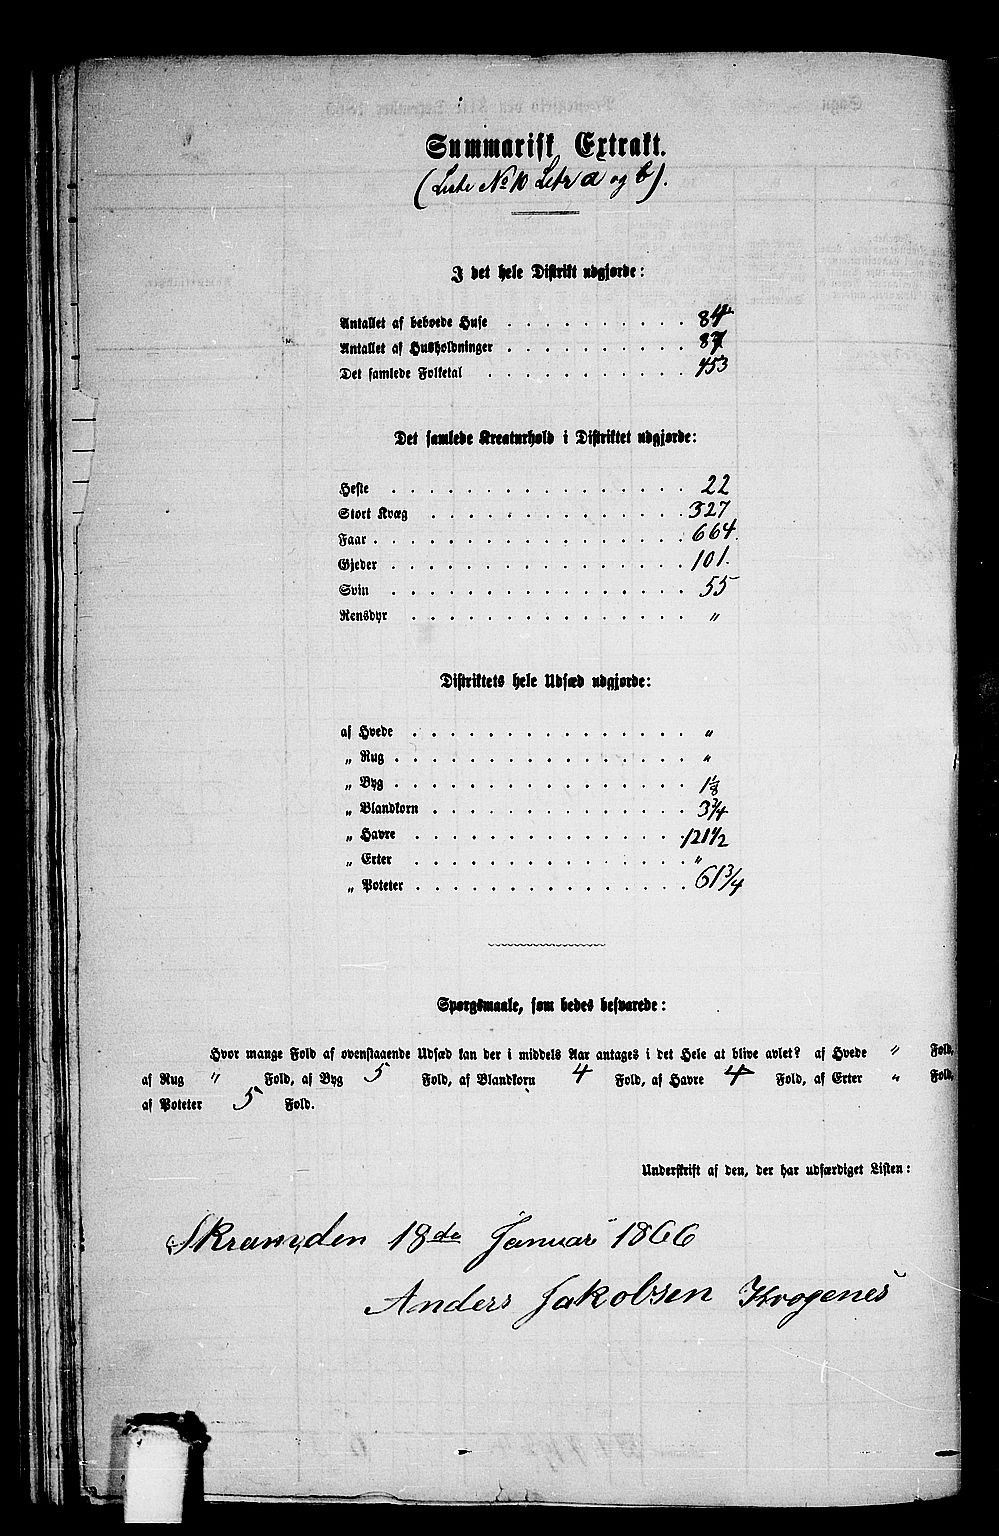 Summarisk Extrakt.
(Liste No 10 Letr a og b).
I det hele Distrikt udgjorde:
Antallet af beboede Huse . . . . . . . . . . 84
Antallet af Husholdninger . . . . . . . . . . 87
Det samlede Folketal . . . . . . . . . . . 453
Det samlede Kreaturhold i Distriktet udgjorde:
Heste . . . . . . . . . . . . . . . . 22
Stort Kvæg . . . . . . . . . . . . . . 327
Faar . . . . . . . . . . . . . . . . . 664.
Gjeder . . . . . . . . . . . . . . . . 101.
Svin . . . . . . . . . . . . . . . . 55
Rensdyr . . . . . . . . . . . . . . . "
Distriktets hele Udsæd udgjorde:
af Hvede . . . . . . . . . . . . . . . "
„ Rug . . . . . . . . . . . . . . . . "
„ Byg . . . . . . . . . . . . . . . . 1 1/8
„ Blandkorn . . . . . . . . . . . . . . 3 3/4
„ Havre . . . . . . . . . . . . . . . 121 1/2
„ Erter . . . . . . . . . . . . . . . "
„ Poteter . . . . . . . . . . . . . . . 61 3/4
Spørgsmaale, som bedes besvarede:
Hvor mange Fold af ovenstaaende Udsæd kan der i middels Aar antages i det Hele at blive avlet? af Hvede " Fold,
af Rug " Fold, af Byg 5 Fold, af Blandkorn 4 Fold, af Havre 4 Fold, af Erter " Fold,
af Poteter 5 Fold.
Underskrift af den, der har udfærdiget Listen:
18de Januar 1866
Anders Jakobsen Krogenes